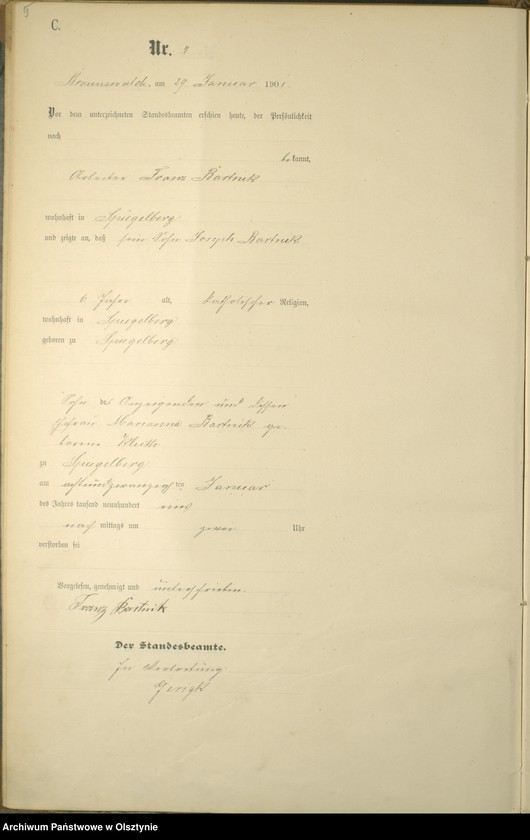 5
C.
Nr.
am 29 Januar 1901.
Vor dem unterzeichneten Standesbeamten erschien heute, der Persönlichkeit
nach
bekannt,
Arbeiter Franz Bartnik
wohnhaft in Spiegelberg
und zeigte an, daß sein Sohn Joseph Bartnik
6 Jahre alt, katholischer Religion,
wohnhaft in Spiegelberg
geboren zu Spiegelberg
Sohn des Anzeigenden und dessen
Ehefrau Marianna Bartnik ge-
borene
zu Spiegelberg
am achtundzwanzigsten Januar
des Jahres tausend neunhundert eins
nach mittags um Uhr
verstorben sei
Vorgelesen, genehmigt und unterschrieben.
Franz Bartnik
Der Standesbeamte.
In Vertretung
Archiwum Państwowe w Olsztynie